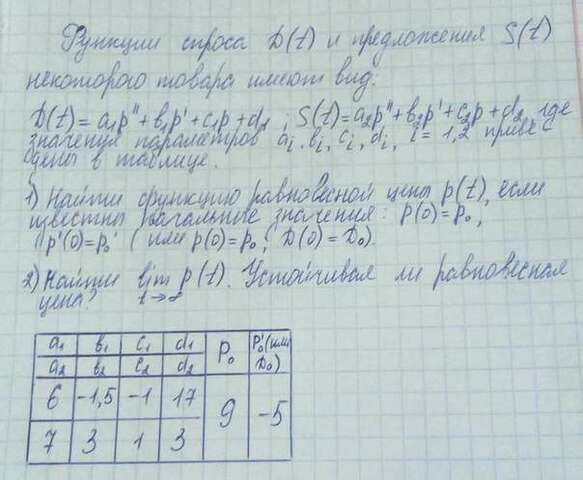 Функции спроса D(t) и предложения S(t)
некоторого товара имеют вид:
D(t) = a₁p''+b₁p'+c₁p+d₁ ; S(t)=a₂p''+b₂p'+c₂p+d₂, где
значения параметров aᵢ, bᵢ, cᵢ, dᵢ, i=1,2 приве
дены в таблице.
1) Найти функцию равновесной цены p(t), если
известны начальные значения: p(0)=p₀,
p'(0)=p₀' (или p(0)=p₀; D(0)=D₀).
2) Найти lim p(t). Устойчивая ли равновесная
t→∞
цена?
a₁ b₁ c₁ d₁ P₀ P₀'(или
a₂ b₂ c₂ d₂ D₀)
6 -1,5 -1 17 9 -5
7 3 1 3